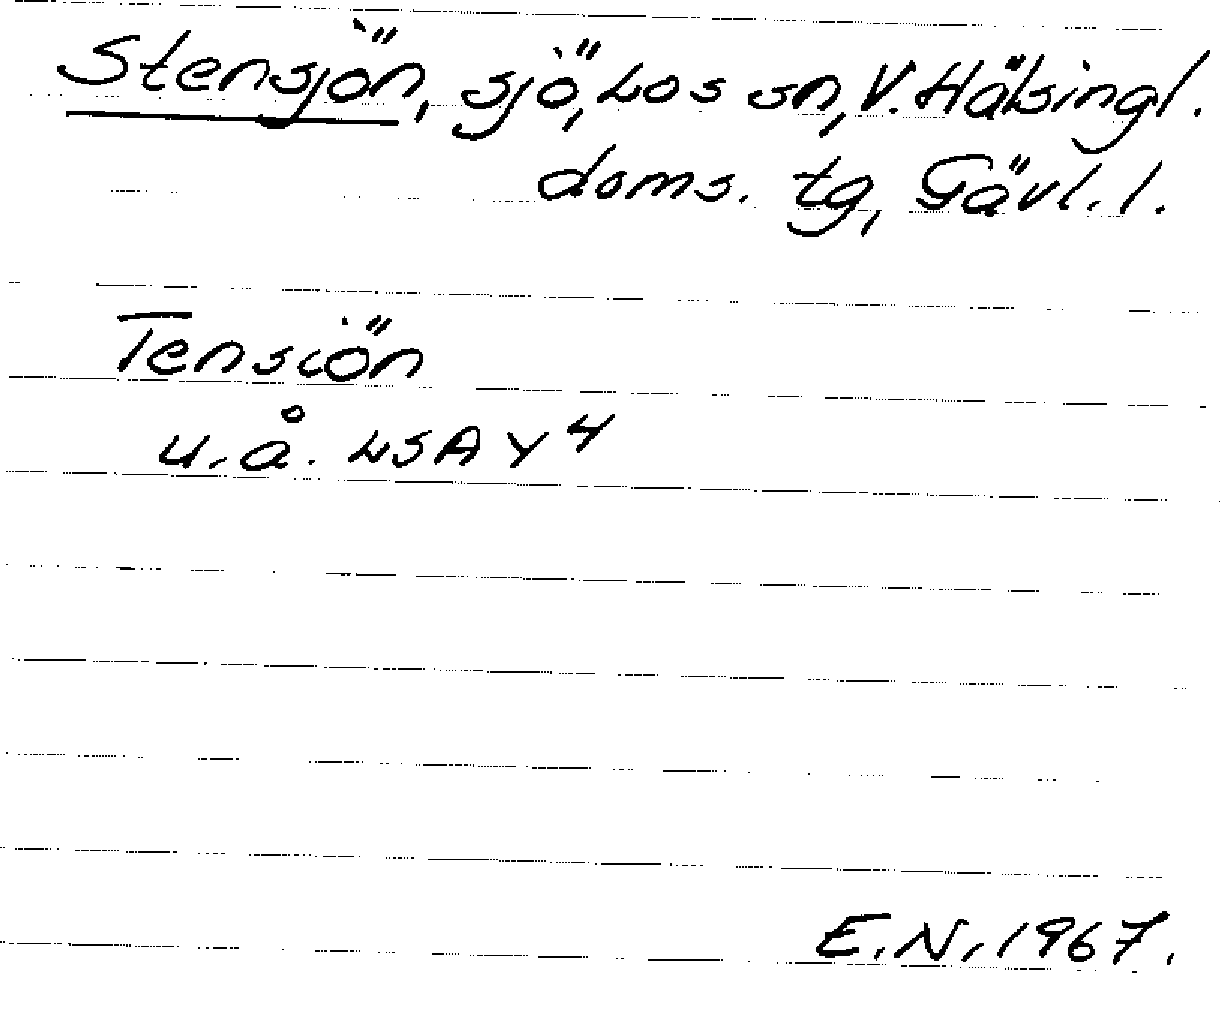 Stensjön, sjö, Los sn, V. Hälsingl.
doms. tg, Gävl. l.
Tensiön
u. å. LSA Y 4
E.N. 1967.